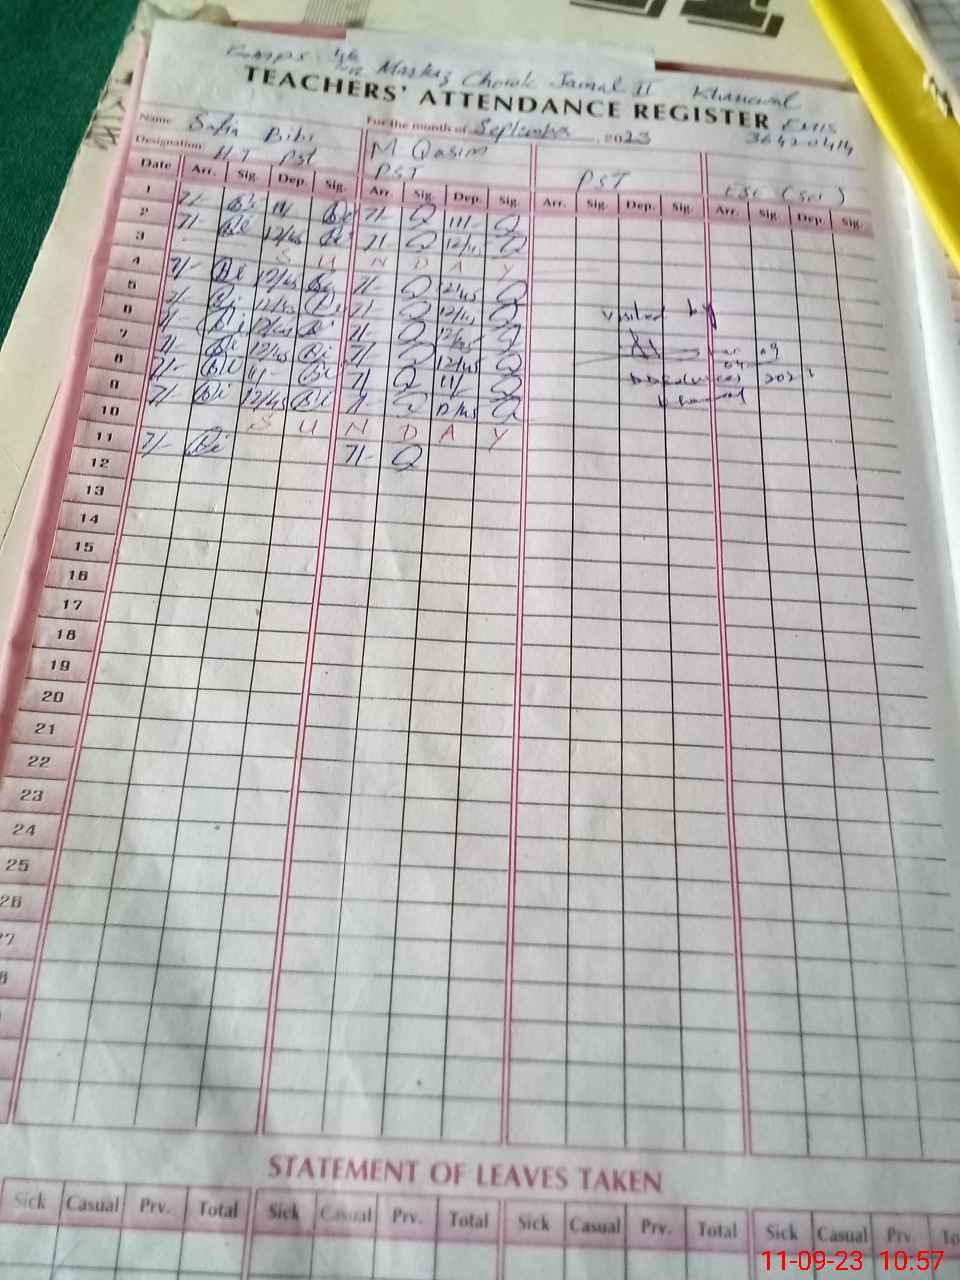 Markaz Chowk Jamal II Khanewal
TEACHERS' ATTENDANCE REGISTER EMIS
Name Safia Bibi For the month of September, 2023 36420414
Designation: HT PST M Qasim
PST PST ESE (Sci)
Date Arr. Sig. Dep. Sig. Arr. Sig. Dep. Sig. Arr. Sig. Dep. Sig. Arr. Sig. Dep. Sig.
1 7/- 11/- 7/- Q 11/- Q
2 7/- 12/45 7/- Q 12/45 Q
3 S U N D A Y
4 7/- 12/45 7/- Q 12/45 Q
5 7/- 12/45 7/- Q 12/45 Q
6 7/- 12/45 7/- Q 12/45 Q
7 7/- 12/45 7/- Q 12/45 Q
8 7/- 11/- 7/- Q 11/- Q
9 7/- 12/45 7/- Q 12/45 Q
10 S U N D A Y
11 7/- 7/- Q
12
13
14
15
16
17
18
19
20
21
22
23
24
25
26
visited by
09
04
Khanewal
STATEMENT OF LEAVES TAKEN
Sick Casual Prv. Total Sick Casual Prv. Total Sick Casual Prv. Total Sick Casual Prv.
11-09-23 10:57